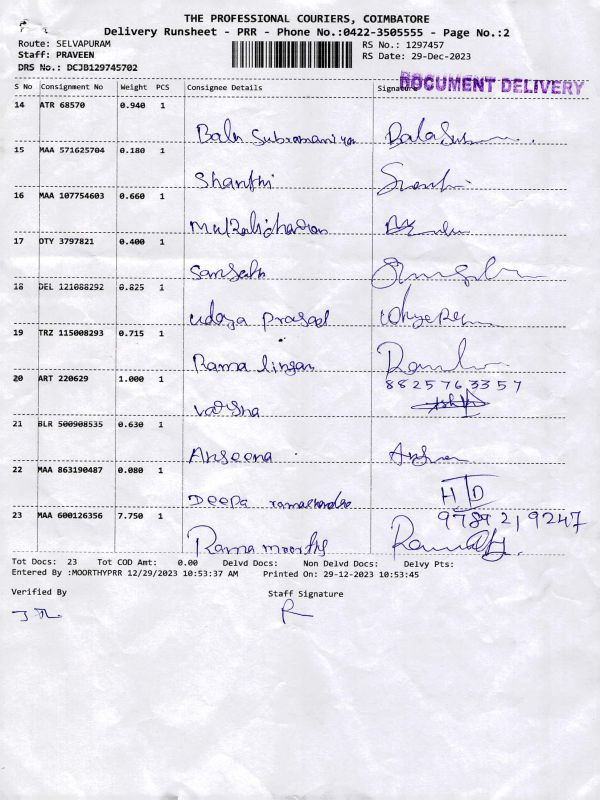 THE PROFESSIONAL COURIERS, COIMBATORE
Delivery Runsheet - PRR - Phone No.:0422-3505555 - Page No.:2
Route: SELVAPURAM RS No.: 1297457
Staff: PRAVEEN RS Date: 29-Dec-2023
DRS No.: DCJB129745702
DOCUMENT DELIVERY
S No Consignment No Weight PCS Consignee Details Signature
14 ATR 68570 0.940 1
Balu Subramaniyan BalaSu
15 MAA 571625704 0.180 1
Shanthi
16 MAA 107754603 0.660 1
17 DTY 3797821 0.400 1
18 DEL 121088292 0.825 1
udaya prasad
19 TRZ 115008293 0.715 1
Rama lingam
20 ART 220629 1.000 1 8825763357
Varsha
21 BLR 500908535 0.630 1
Anseena
22 MAA 863190487 0.080 1
Deepa ramachandra HD
23 MAA 600126356 7.750 1 9789219247
Rama moorthy
Tot Docs: 23 Tot COD Amt: 0.00 Delvd Docs: Non Delvd Docs: Delvy Pts:
Entered By :MOORTHYPRR 12/29/2023 10:53:37 AM Printed On: 29-12-2023 10:53:45
Verified By Staff Signature